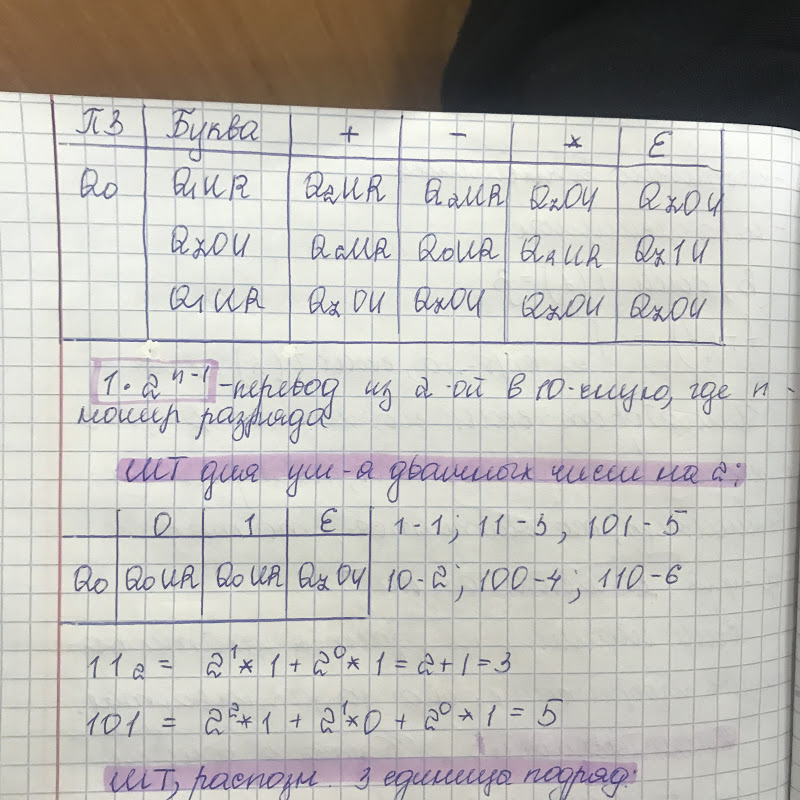 ПЗ Буква + - * Е
Q0 Q1ИR Q2ИR Q2ИR QzОИ QzОИ
QzОИ Q0ИR Q0ИR Q2ИR Qz1И
Q1ИR QzОИ QzОИ QzОИ QzОИ
1·2ⁿ⁻¹ -перевод из 2-ой в 10-чную, где n -
номер разряда
МТ для ум-я двоичных чисел на 2:
0 1 Е 1-1; 11-3, 101-5
Q0 Q0ИR Q0ИR QzОИ 10-2; 100-4; 110-6
11₂ = 2¹*1+2⁰*1=2+1=3
101 = 2²*1 + 2¹*0 + 2⁰*1 = 5
МТ, распозн. 3 единицы подряд: